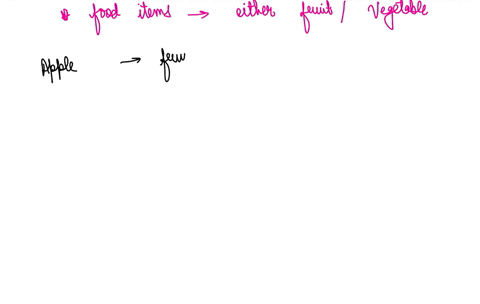 * food items → either fruit / Vegetable
Apple → fru